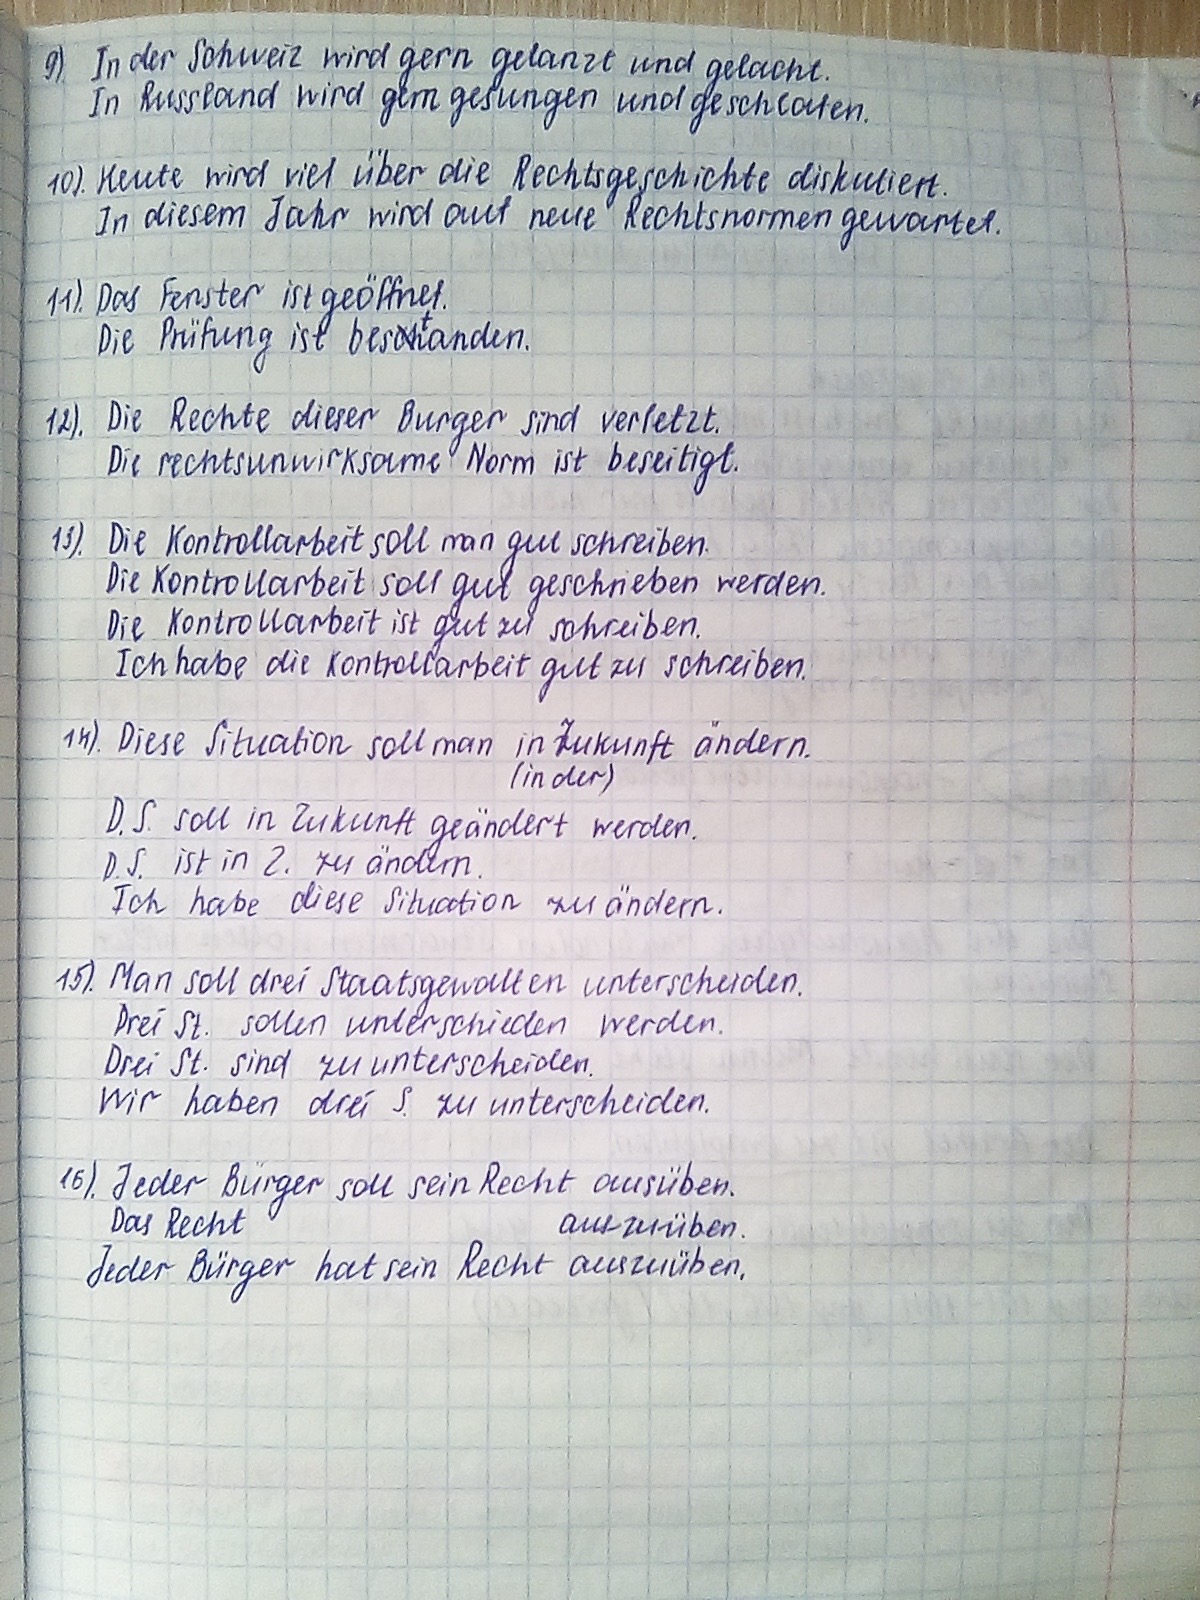 9) In der Schweiz wird gern getanzt und gelacht.
In Russland wird gern gesungen und geschlafen.
10). Heute wird viel über die Rechtsgeschichte diskutiert.
In diesem Jahr wird auf neue Rechtsnormen gewartet.
11). Das Fenster ist geöffnet.
Die Prüfung ist bestanden.
12). Die Rechte dieser Burger sind verletzt.
Die rechtsunwirksame Norm ist beseitigt.
13). Die Kontrollarbeit soll man gut schreiben.
Die Kontrollarbeit soll gut geschrieben werden.
Die Kontrollarbeit ist gut zu schreiben.
Ich habe die Kontrollarbeit gut zu schreiben.
14). Diese Situation soll man in Zukunft ändern.
(in der)
D.S. soll in Zukunft geändert werden.
D.S. ist in Z. zu ändern.
Ich habe diese Situation zu ändern.
15). Man soll drei Staatsgewalten unterscheiden.
Drei St. sollen unterschieden werden.
Drei St. sind zu unterscheiden.
Wir haben drei S. zu unterscheiden.
16). Jeder Bürger soll sein Recht ausüben.
Das Recht auszuüben.
Jeder Bürger hat sein Recht auszuüben.